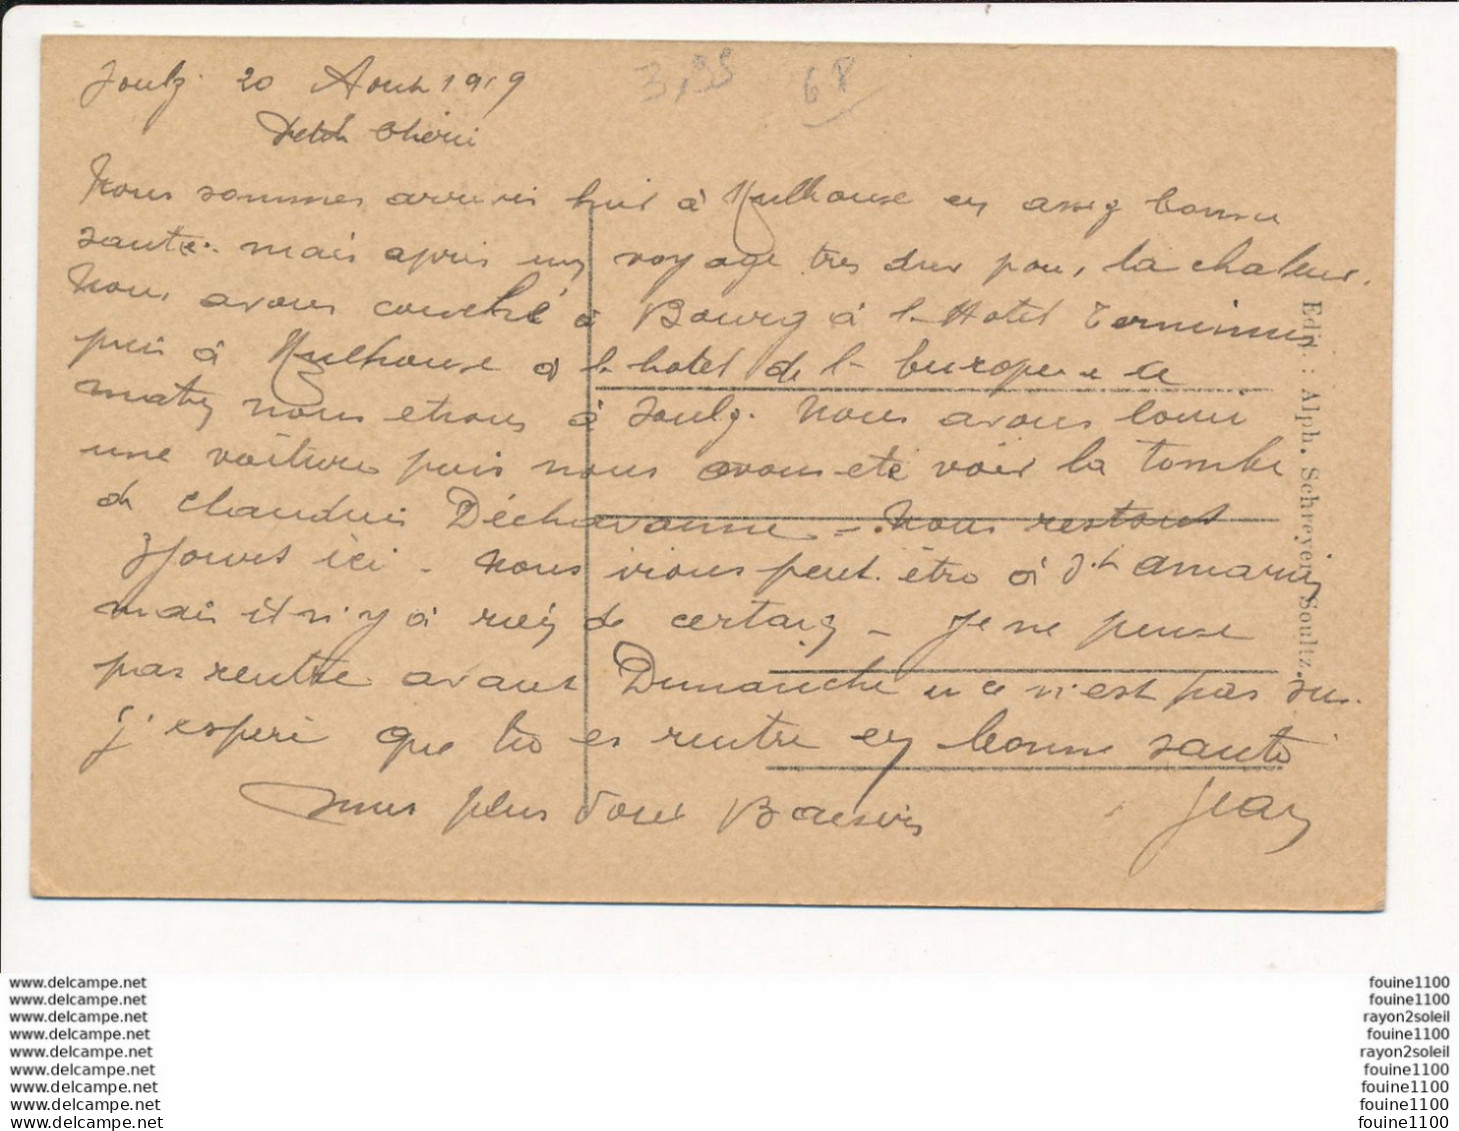 Soulz. 20 Aout 1919
3,95 68
Petit Chéri
Nous sommes arrivés hier à Mulhouse en assez bonne
santé. mais apres un voyage tres dur par la chaleur.
Nous avons couché à Bourg à l'Hotel Terminus
puis à Mulhouse à l'hotel de l'europe e ce
matin nous etions à Soulz. Nous avons loué
une voiture puis nous avons eté voir la tombe
de Claudius Déchavanne - Nous restons
jours ici - Nous irions peut. être à St amarin
mais il n'y à rien de certain - Je ne pense
pas rentre avant Dimanche e ce n'est pas sur.
j'espere que tu es rentre en bonne santé
mes plus doux Baisers Jean
Edit : Alph. Schreyer Soultz.
www.delcampe.net fouine1100
www.delcampe.net fouine1100
www.delcampe.net rayon2soleil
www.delcampe.net fouine1100
www.delcampe.net rayon2soleil
www.delcampe.net fouine1100
www.delcampe.net fouine1100
www.delcampe.net fouine1100
www.delcampe.net fouine1100